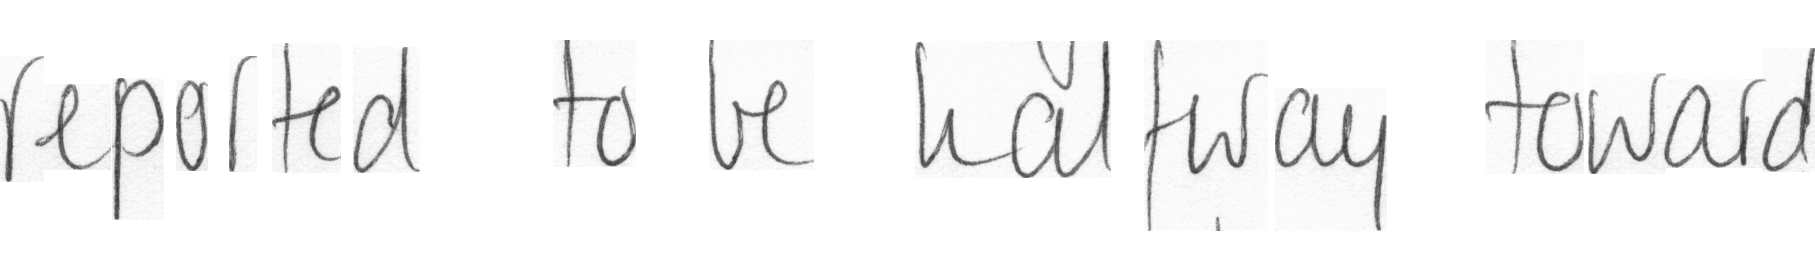 reported to be halfway toward